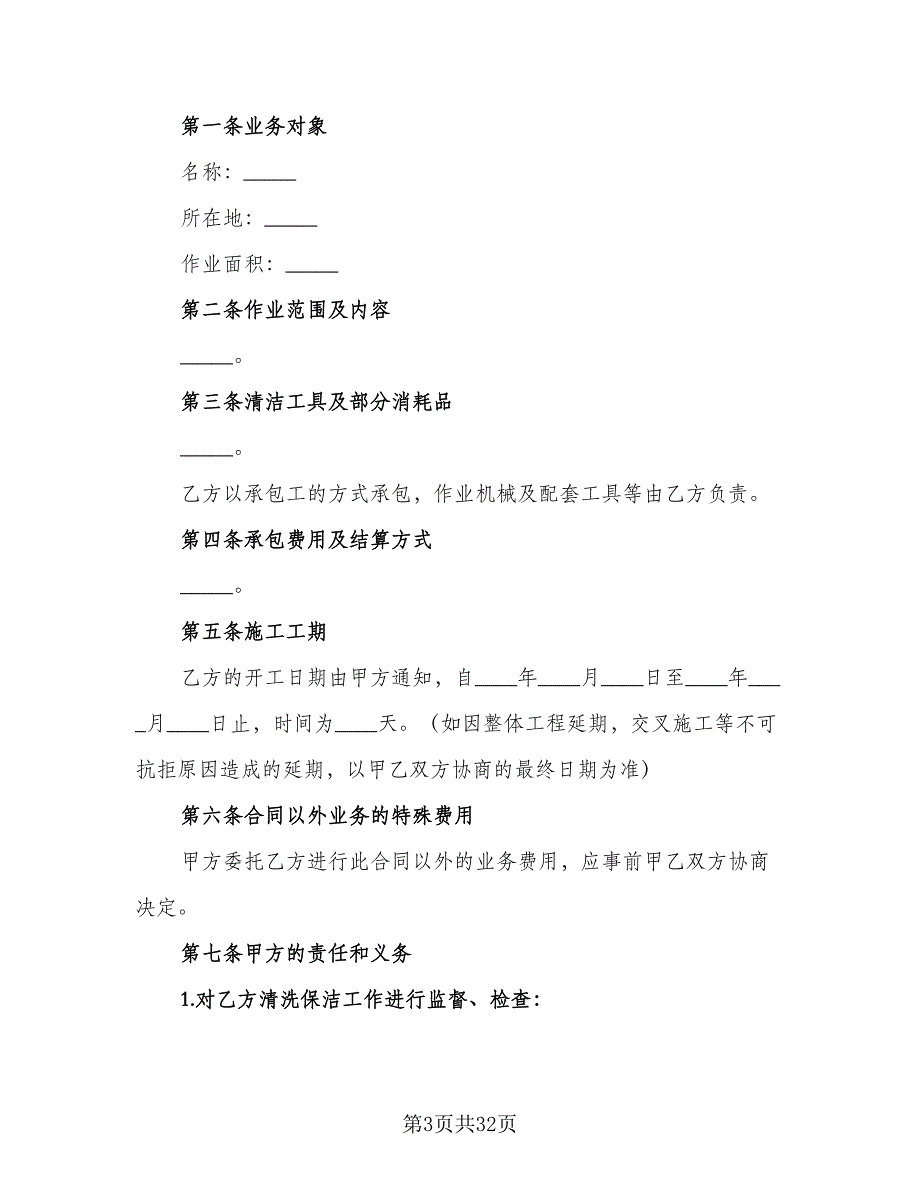 第一条业务对象
名称：_____
所在地：_____
作业面积：_____
第二条作业范围及内容
_____。
第三条清洁工具及部分消耗品
_____。
乙方以承包工的方式承包，作业机械及配套工具等由乙方负责。
第四条承包费用及结算方式
_____。
第五条施工工期
乙方的开工日期由甲方通知，自____年____月____日至____年___
_月____日止，时间为____天。（如因整体工程延期，交叉施工等不可
抗拒原因造成的延期，以甲乙双方协商的最终日期为准）
第六条合同以外业务的特殊费用
甲方委托乙方进行此合同以外的业务费用，应事前甲乙双方协商
决定。
第七条甲方的责任和义务
1.对乙方清洗保洁工作进行监督、检查：
第3页共32页